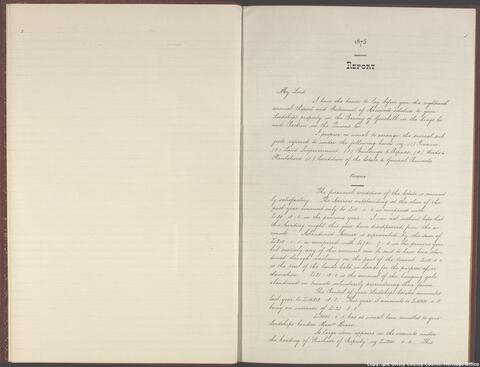 1875
REPORT
My Lord
I have the honor to lay before you the eighteenth
annual Report and Statement of Accounts relative to your
Lordships property in the Barony of Geashill in the Kings Co
and Portion in the Queens Co.
I propose as usual to arrange the several sub
jects referred to under the following heads viz (1) Finance
(2) Land Improvement (3) Buildings & Repairs (4) Woods &
Plantations (5) Condition of the Estate & General Remarks
Finance
The financial condition of the Estate is eminent
ly satisfactory. The Arrears outstanding at the close of the
past year amount only to
as compared with
in the previous year. I was not without hopes that
this heading might this year have disappeared from the ac
counts. Abandoned Arrears is represented by the sum of
as compared with
in the previous year
but scarcely any of this amount can be said to have been aban
doned through insolvency on the part of the tenant
is the part of the lands held in hands for the purpose of
is the amount of the hanging gale
abandoned on tenants voluntarily surrendering their farms.
The Rental of your Lordships Estates amounted
last year to
This year it amounts to
being an increase of
has as usual been remitted to your
Lordships bankers Messrs Hoare.
A large item appears in the accounts under
the heading of "Purchase of Property" viz
This
Copyright Offaly County Council Heritage Office